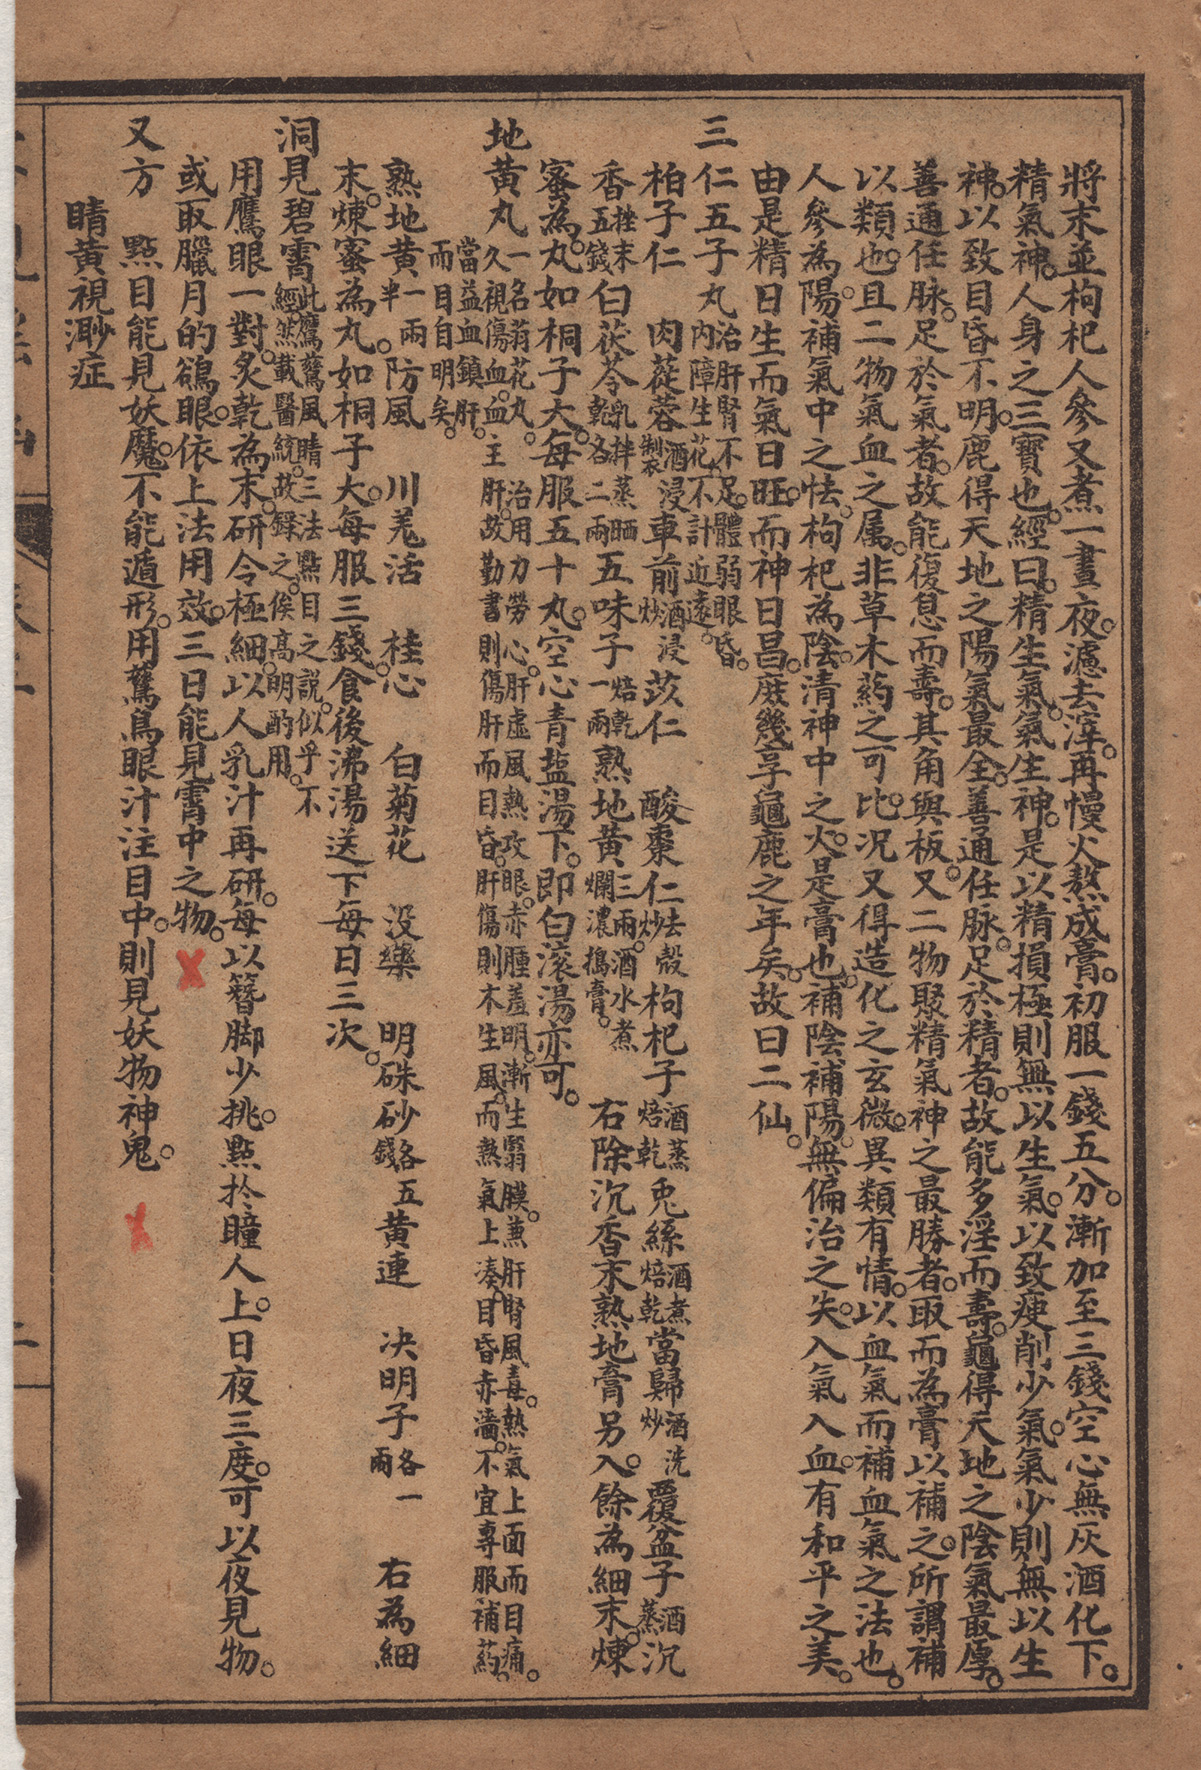 將末並枸杞人參又煮一晝夜。濾去滓。再慢火熬成膏。初服一錢五分。漸加至三錢空心無灰酒化下。
精氣神。人身之三寶也。經曰。精生氣。氣生神。是以精損極則無以生氣。以致瘦削少氣。氣少則無以生
神。以致目昏不明。鹿得天地之陽氣最全。善通任脉。足於精者。故能多淫而壽。龜得天地之陰氣最厚。
善通任脉。足於氣者。故能復息而壽。其角與板。又二物聚精氣神之最勝者。取而為膏以補之。所謂補
以類也。且二物氣血之属。非草木葯之可比。况又得造化之玄微。異類有情。以血氣而補血氣之法也。
人參為陽。補氣中之怯。枸杞為陰。清神中之火。是膏也。補陰補陽。無偏治之失。入氣入血。有和平之美。
由是精日生而氣日旺。而神日昌。庶幾享龜鹿之年矣。故曰二仙。
三仁五子丸 治肝腎不足。體弱眼昏。內障生花。不計近遠。
柏子仁 肉蓯蓉 酒浸製衣 車前 酒浸炒 苡仁 酸棗仁 去殼炒 枸杞子 酒蒸焙乾 兎絲 酒煮焙乾 當歸 酒洗炒 覆盆子 酒蒸 沉
香 挫末五錢 白茯苓 乳拌蒸晒乾各二兩 五味子 焙乾一兩 熟地黃 三兩。酒水煮爛濃搗膏。 右除沉香末熟地膏另入。餘為細末。煉
蜜為。丸如桐子大。每服五十丸。空心青盐湯下。即白滚湯亦可。
地黃丸 一名菊花丸。治用力勞心。肝虛風熱攻眼。赤腫羞明。漸生翳膜。兼肝腎風毒。熱氣上面而目痛。
久視傷血。血主肝。故勤書則傷肝而目昏。肝傷則木生風。而熱氣上湊。目昏赤濇。不宜專服補葯。
當益血鎮肝。而目自明矣。
熟地黃 一兩半 防風 川羌活 桂心 白菊花 没藥 明硃砂 各五錢 黃連 决明子 各一兩 右為細
末。煉蜜為丸。如桐子大。每服三錢。食後沸湯送下。每日三次。
洞見碧霄 此鷹鶩風睛三法點目之說。似乎不經。然載醫統。故錄之。俟高明酌用。
用鷹眼一對。炙乾為末。研令極細。以人乳汁再研。每以簪脚少挑。點於瞳人上。日夜三度。可以夜見物。
或取臘月的鴿眼。依上法用效。三日能見霄中之物。
又方 點目能見妖魔。不能遁形。用鶩鳥眼汁注目中。則見妖物神鬼。
睛黃視渺症